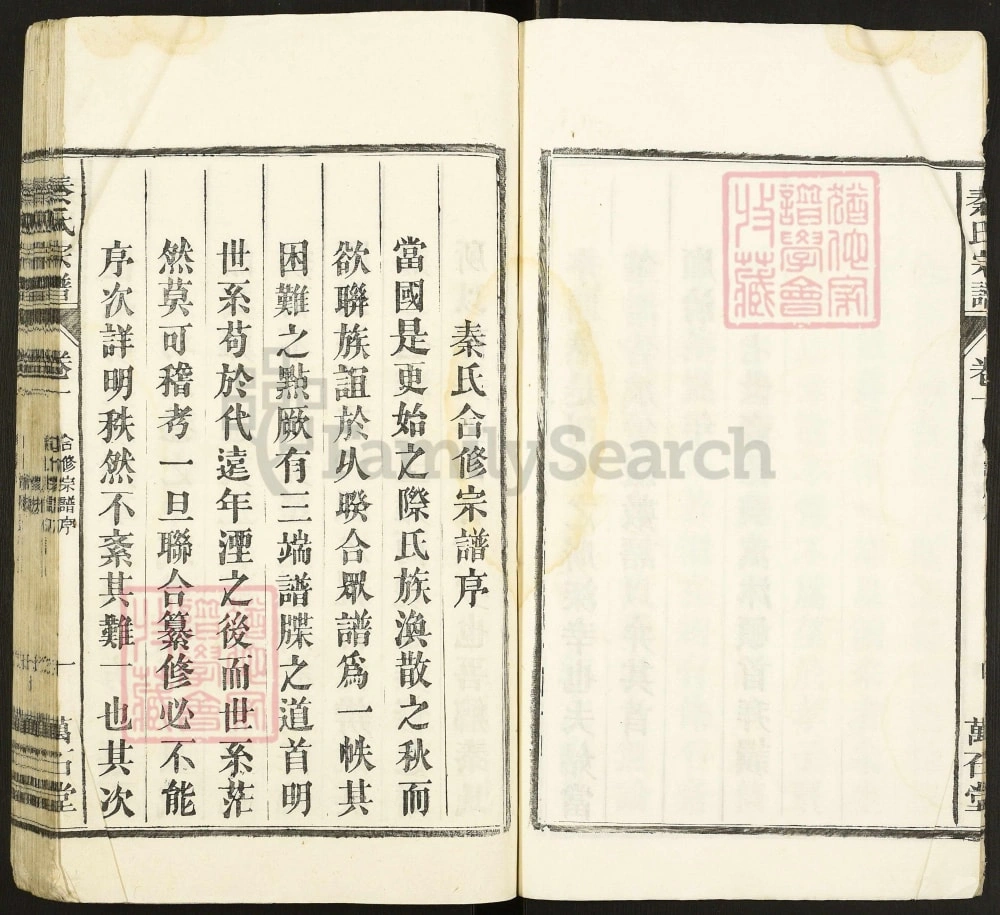 秦氏宗譜
卷一
萬石堂
猶他家
譜學會
收藏
秦氏合修宗譜序
當國是更始之際氏族渙散之秋而
欲聯族誼於以聯合眾譜爲一帙其
困難之點厥有三端譜牒之道首明
世系苟於代遠年湮之後而世系茫
然莫可稽考一旦聯合纂修必不能
序次詳明秩然不紊其難一也其次
秦氏宗譜
卷一
合修宗譜序
一
萬石堂
猶他家
譜學會
收藏
FamilySearch